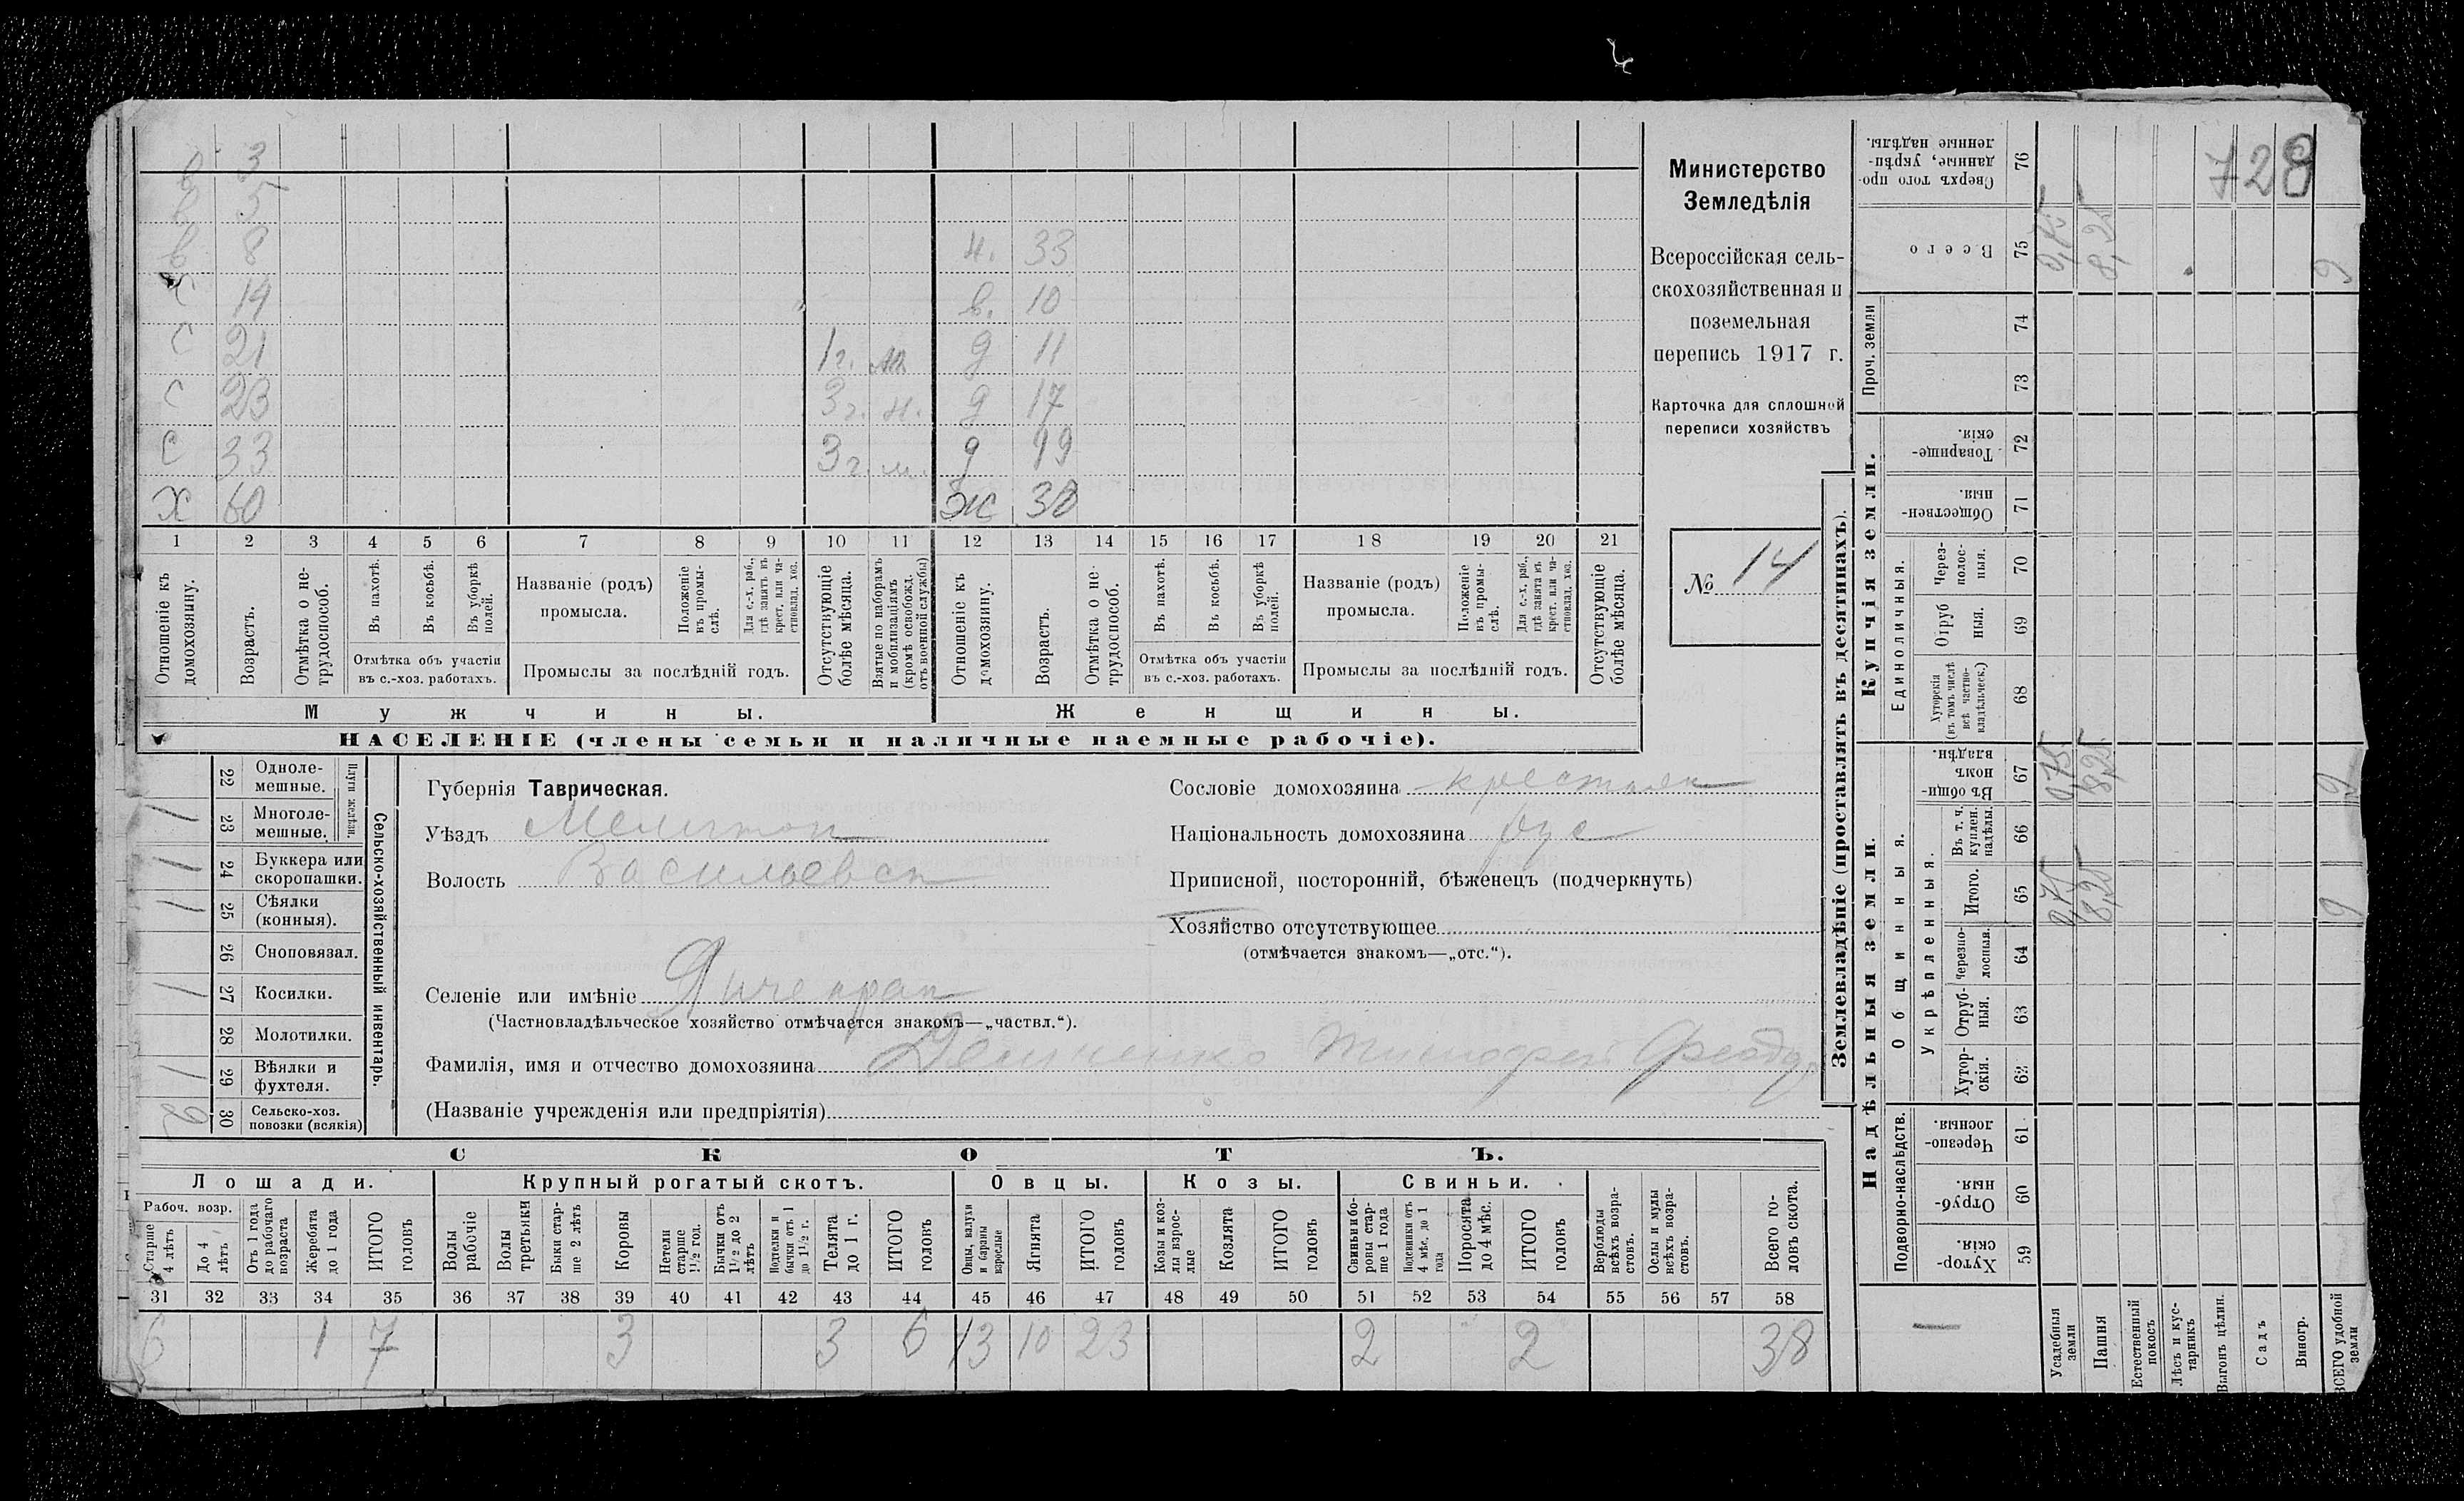 728
в 3
в 5
в 8 н. 33
с 14 в. 10
с 21 1 г. м д 11
с 23 3 г. н. д 17
с 33 3 г. м. д 19
х 60 ж 38
1 2 3 4 5 6 7 8 9 10 11 12 13 14 15 16 17 18 19 20 21
Отношеніе къ домохозяину.
Возрастъ.
Отмѣтка о нетрудоспособ.
Въ пахотѣ.
Въ косьбѣ.
Въ уборкѣ полей.
Отмѣтка объ участіи
въ с.-хоз. работахъ.
Названіе (родъ)
промысла.
Положеніе въ промыслѣ.
Для с.-х. раб., гдѣ занятъ въ крест. или частновлад. хоз.
Промыслы за послѣдній годъ.
Отсутствующіе болѣе мѣсяца.
Взятые по наборамъ и мобилизаціямъ (кромѣ освобожд. отъ военной службы)
Отношеніе къ домохозяину.
Возрастъ.
Отмѣтка о нетрудоспособ.
Въ пахотѣ.
Въ косьбѣ.
Въ уборкѣ полей.
Отмѣтка объ участіи
въ с.-хоз. работахъ.
Названіе (родъ)
промысла.
Положеніе въ промыслѣ.
Для с.-х. раб., гдѣ занята въ крест. или частновлад. хоз.
Промыслы за послѣдній годъ.
Отсутствующіе болѣе мѣсяца.
Мужчины. Женщины.
НАСЕЛЕНІЕ (члены семьи и наличные наемные рабочіе).
Министерство
Земледѣлія
Всероссійская сель-
скохозяйственная и
поземельная
перепись 1917 г.
Карточка для сплошной
переписи хозяйствъ
№ 14
Сельско-хозяйственный инвентарь.
Плуги желѣзн.
22 Одноле-
мешные.
1 23 Многоле-
мешные.
1 24 Буккера или
скоропашки.
1 25 Сѣялки
(конныя).
26 Сноповязал.
1 27 Косилки.
28 Молотилки.
1 29 Вѣялки и
фухтеля.
2 30 Сельско-хоз.
повозки (всякія)
Губернія Таврическая.
Уѣздъ Мелитоп
Волость Васильевск
Селеніе или имѣніе Янчекрак
(Частновладѣльческое хозяйство отмѣчается знакомъ—„частвл.“).
Фамилія, имя и отчество домохозяина Тимофей Феодо
(Названіе учрежденія или предпріятія)
Сословіе домохозяина крестьян
Національность домохозяина рус
Приписной, посторонній, бѣженецъ (подчеркнуть)
Хозяйство отсутствующее
(отмѣчается знакомъ—„отс.“).
СКОТЪ.
Лошади. Крупный рогатый скотъ. Овцы. Козы. Свиньи.
Рабоч. возр.
Старше 4 лѣтъ
До 4 лѣтъ
Отъ 1 года до рабочаго возраста
Жеребята до 1 года
ИТОГО головъ
Волы рабочіе
Волы третьяки
Быки старше 2 лѣтъ
Коровы
Нетели старше 1½ год.
Бычки отъ 1½ до 2 лѣтъ
Подтелки и бычки отъ 1 до 1½ г.
Телята до 1 г.
ИТОГО головъ
Овцы, валухи и бараны взрослые
Ягнята
ИТОГО головъ
Козы и козлы взрослые
Козлята
ИТОГО головъ
Свиньи и боровы старше 1 года
Подсвинки отъ 4 мѣс. до 1 года
Поросята до 4 мѣс.
ИТОГО головъ
Верблюды всѣхъ возрастовъ.
Ослы и мулы всѣхъ возрастовъ.
Всего головъ скота.
31 32 33 34 35 36 37 38 39 40 41 42 43 44 45 46 47 48 49 50 51 52 53 54 55 56 57 58
6 1 7 3 3 6 13 10 23 2 2 38
Землевладѣніе (проставлять въ десятинахъ).
Надѣльныя земли. Купчія земли. Проч. земли
Подворно-наслѣдств. Общинныя. Единоличныя.
Укрѣпленныя.
59 Хутор-
скія.
60 Отруб-
ныя.
61 Черезпо-
лосныя.
62 Хутор-
скія.
63 Отруб-
ныя.
64 Черезпо-
лосныя.
65 Итого.
66 Въ т. ч. куплен. надѣлы.
67 Въ общин-
номъ
владѣн.
68 Хуторскія
(въ томъ числѣ
всѣ частно-
владѣльческ.)
69 Отруб
ныя.
70 Через-
полос-
ныя.
71 Обществен-
ныя.
72 Товарище-
скія.
73
74
75 Всего
76 Сверхъ того про-
данные, укрѣп-
ленные надѣлы.
Усадебныя земли 0,75 0,75 0,75
Пашня 8,25 8,25 8,25
Естественный покосъ
Лѣсъ и кустарникъ
Выгонъ цѣлин.
Садъ
Виногр.
ВСЕГО удобной земли 9 9 9